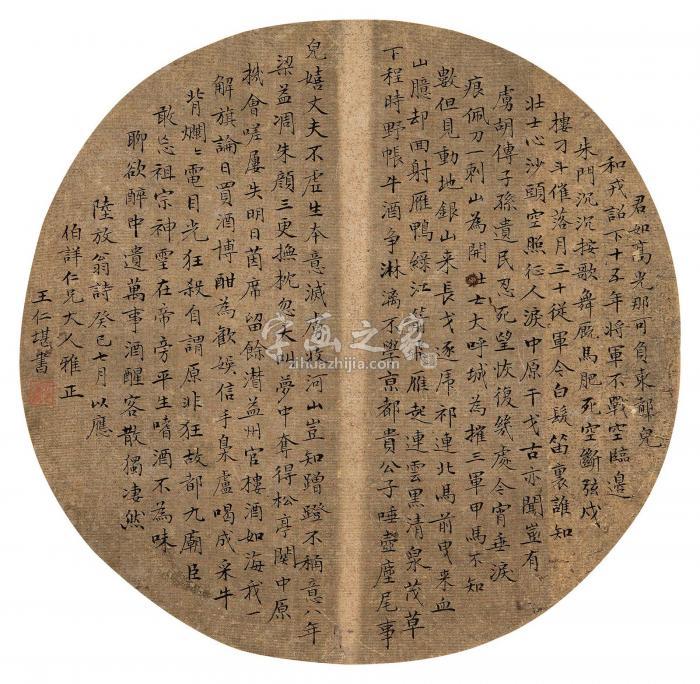 君如高光那可負東都兒
和戎詔下十五年將軍不戰空臨邊
朱門沉沉按歌舞廐馬肥死空斷弦戍
樓刁斗催落月三十從軍今白髮笛裏誰知
壯士心沙頭空照征人淚中原干戈古亦聞豈有
虜胡傳子孫遺民忍死望恢復幾處今宵垂淚
痕佩刀一刺山為開壯士大呼城為摧三軍甲馬不知
數但見動地銀山來長戈逐虎祁連北馬前曳來血
山臆却回射雁鴨綠江雁起連雲黑清泉茂草
下程時野帳牛酒爭淋漓不學京都貴公子唾壺麈尾事
兒嬉丈夫不虛生本意滅虜收河山豈知蹭蹬不稱意八年
梁益凋朱顏三更撫枕忽大叫夢中奪得松亭關中原
機會嗟屢失明日茵席留餘潸益州官樓酒如海我一
解旗論日買酒博酣為歡娛信手梟盧喝成采牛
背爛〻電目光狂殺自謂原非狂故都九廟臣
敢忘祖宗神靈在帝旁平生嗜酒不為味
聊欲醉中遺萬事酒醒客散獨凄然
陸放翁詩癸巳七月以應
伯詳仁兄大人雅正
王仁堪書
字画之家
zihuazhijia.com